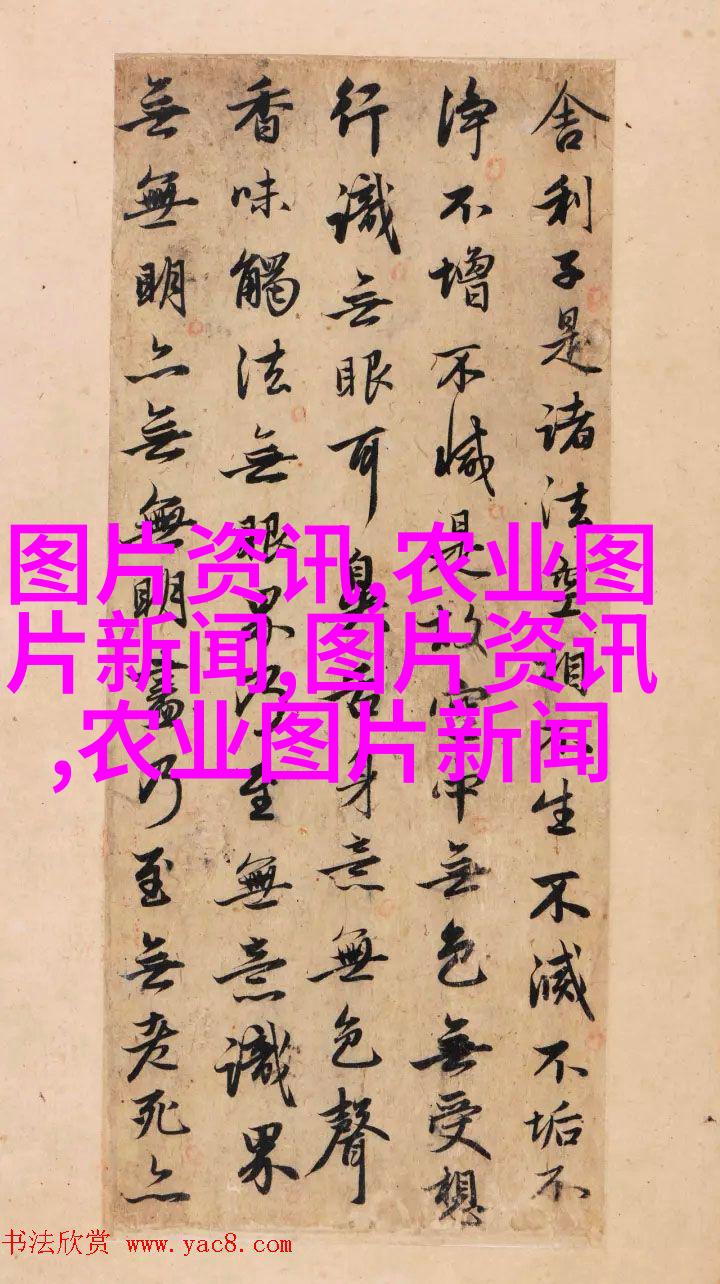 舍利子是諸法空相不生不滅不垢不
淨不增不減是故空中無色無受想
行識無眼耳鼻舌身意無色聲
香味觸法無眼界乃至無意識界
無無明亦無無明盡乃至無老死亦
图片资讯,农业图
片新闻,图片资讯
,农业图片新闻
书法欣赏 www.yac8.com